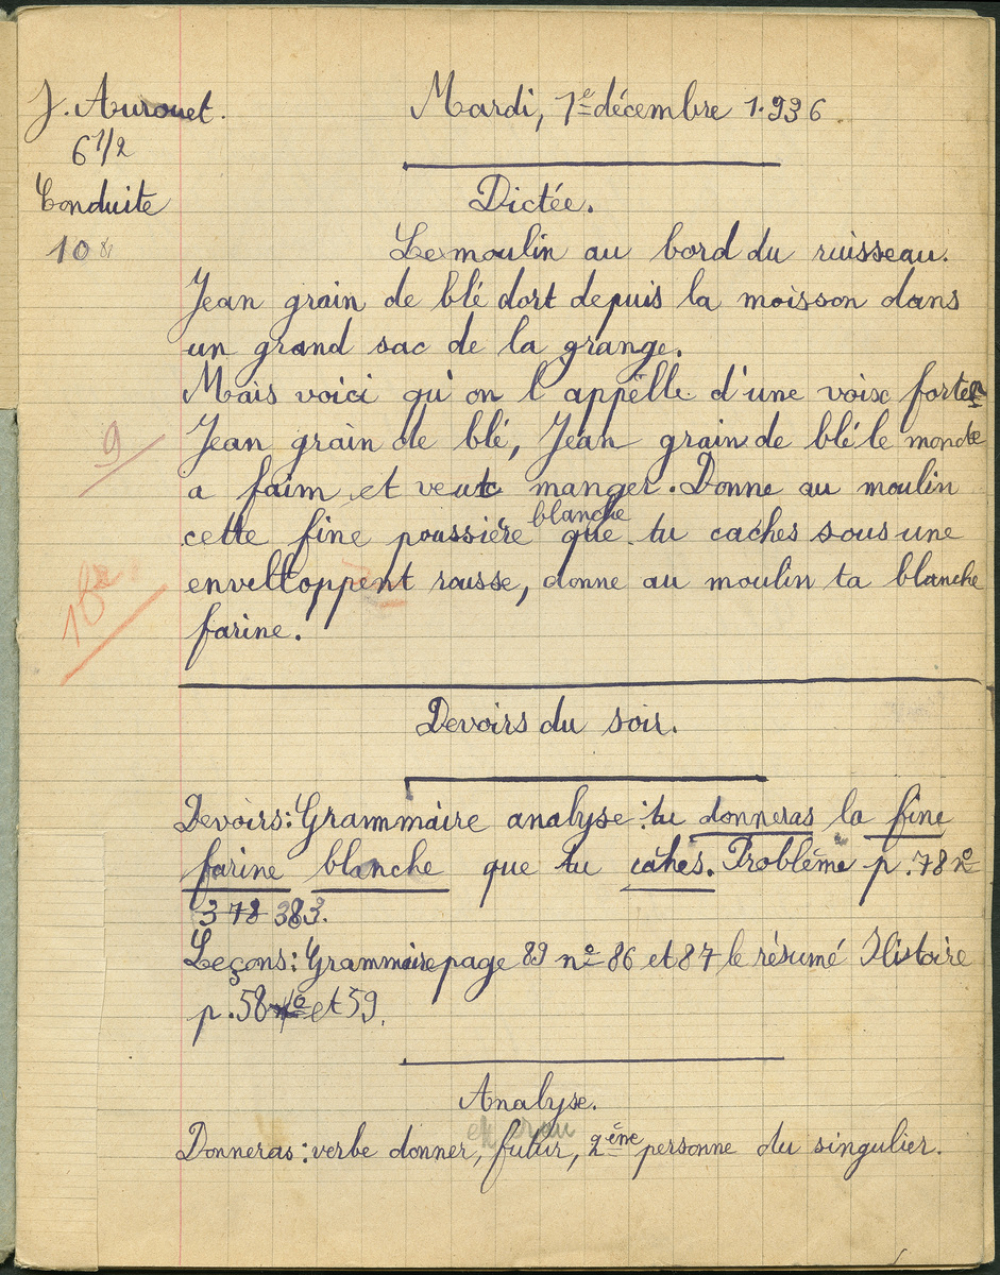 J. Aurouet.
6 1/2
Conduite
10
Mardi, 1e décembre 1.936.
Dictée.
Le moulin au bord du ruisseau.
Jean grain de blé dort depuis la moisson dans
un grand sac de la grange.
Mais voici qu'on l'appèlle d'une voix forte
Jean grain de blé, Jean grain de blé le monde
a faim et veut manger. Donne au moulin
blanche
cette fine poussière que tu caches sous une
enveltoppent rousse, donne au moulin ta blanche
farine.
9
Devoirs du soir.
Devoirs: Grammaire analyse: tu donneras la fine
farine blanche que tu cahes. Problème p. 78 no
378 383.
Leçons: Grammaire page 89 no 86 et 87 le résumé Histoire
p. 58 et 59.
Analyse.
Donneras: verbe donner, futur, 2ème personne du singulier.